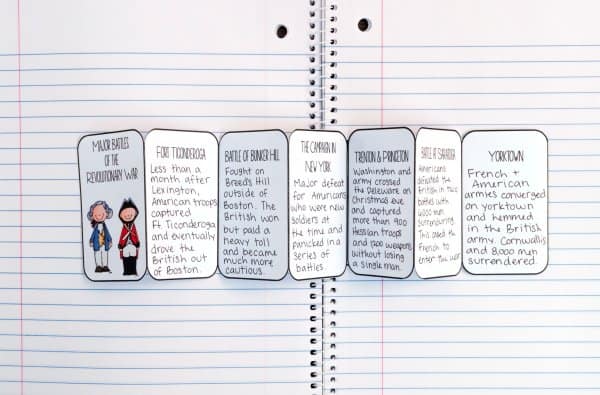 MAJOR BATTLES
OF THE
REVOLUTIONARY WAR
FORT TICONDEROGA
Less than a
month after
Lexington,
American troops
captured
Ft. Ticonderoga
and eventually
drove the
British out
of Boston.
BATTLE OF BUNKER HILL
Fought on
Breed's Hill
outside of
Boston. The
British won
but paid a
heavy toll
and became
much more
cautious.
THE CAMPAIGN IN
NEW YORK
Major defeat
for Americans
who were new
soldiers at
the time and
panicked in a
series of
battles.
TRENTON & PRINCETON
Washington and
army crossed
the Deleware on
Christmas eve
and captured
more than 900
Hessian troops
and 1200 weapons
without losing
a single man.
BATTLE OF SARATOGA
Americans
defeated the
British in this
battle with
6000 men
surrendering.
This caused the
French to
enter the war.
YORKTOWN
French +
American
armies converged
on yorktown
and hemmed
in the British
army. Cornwallis
and 8,000 men
surrendered.